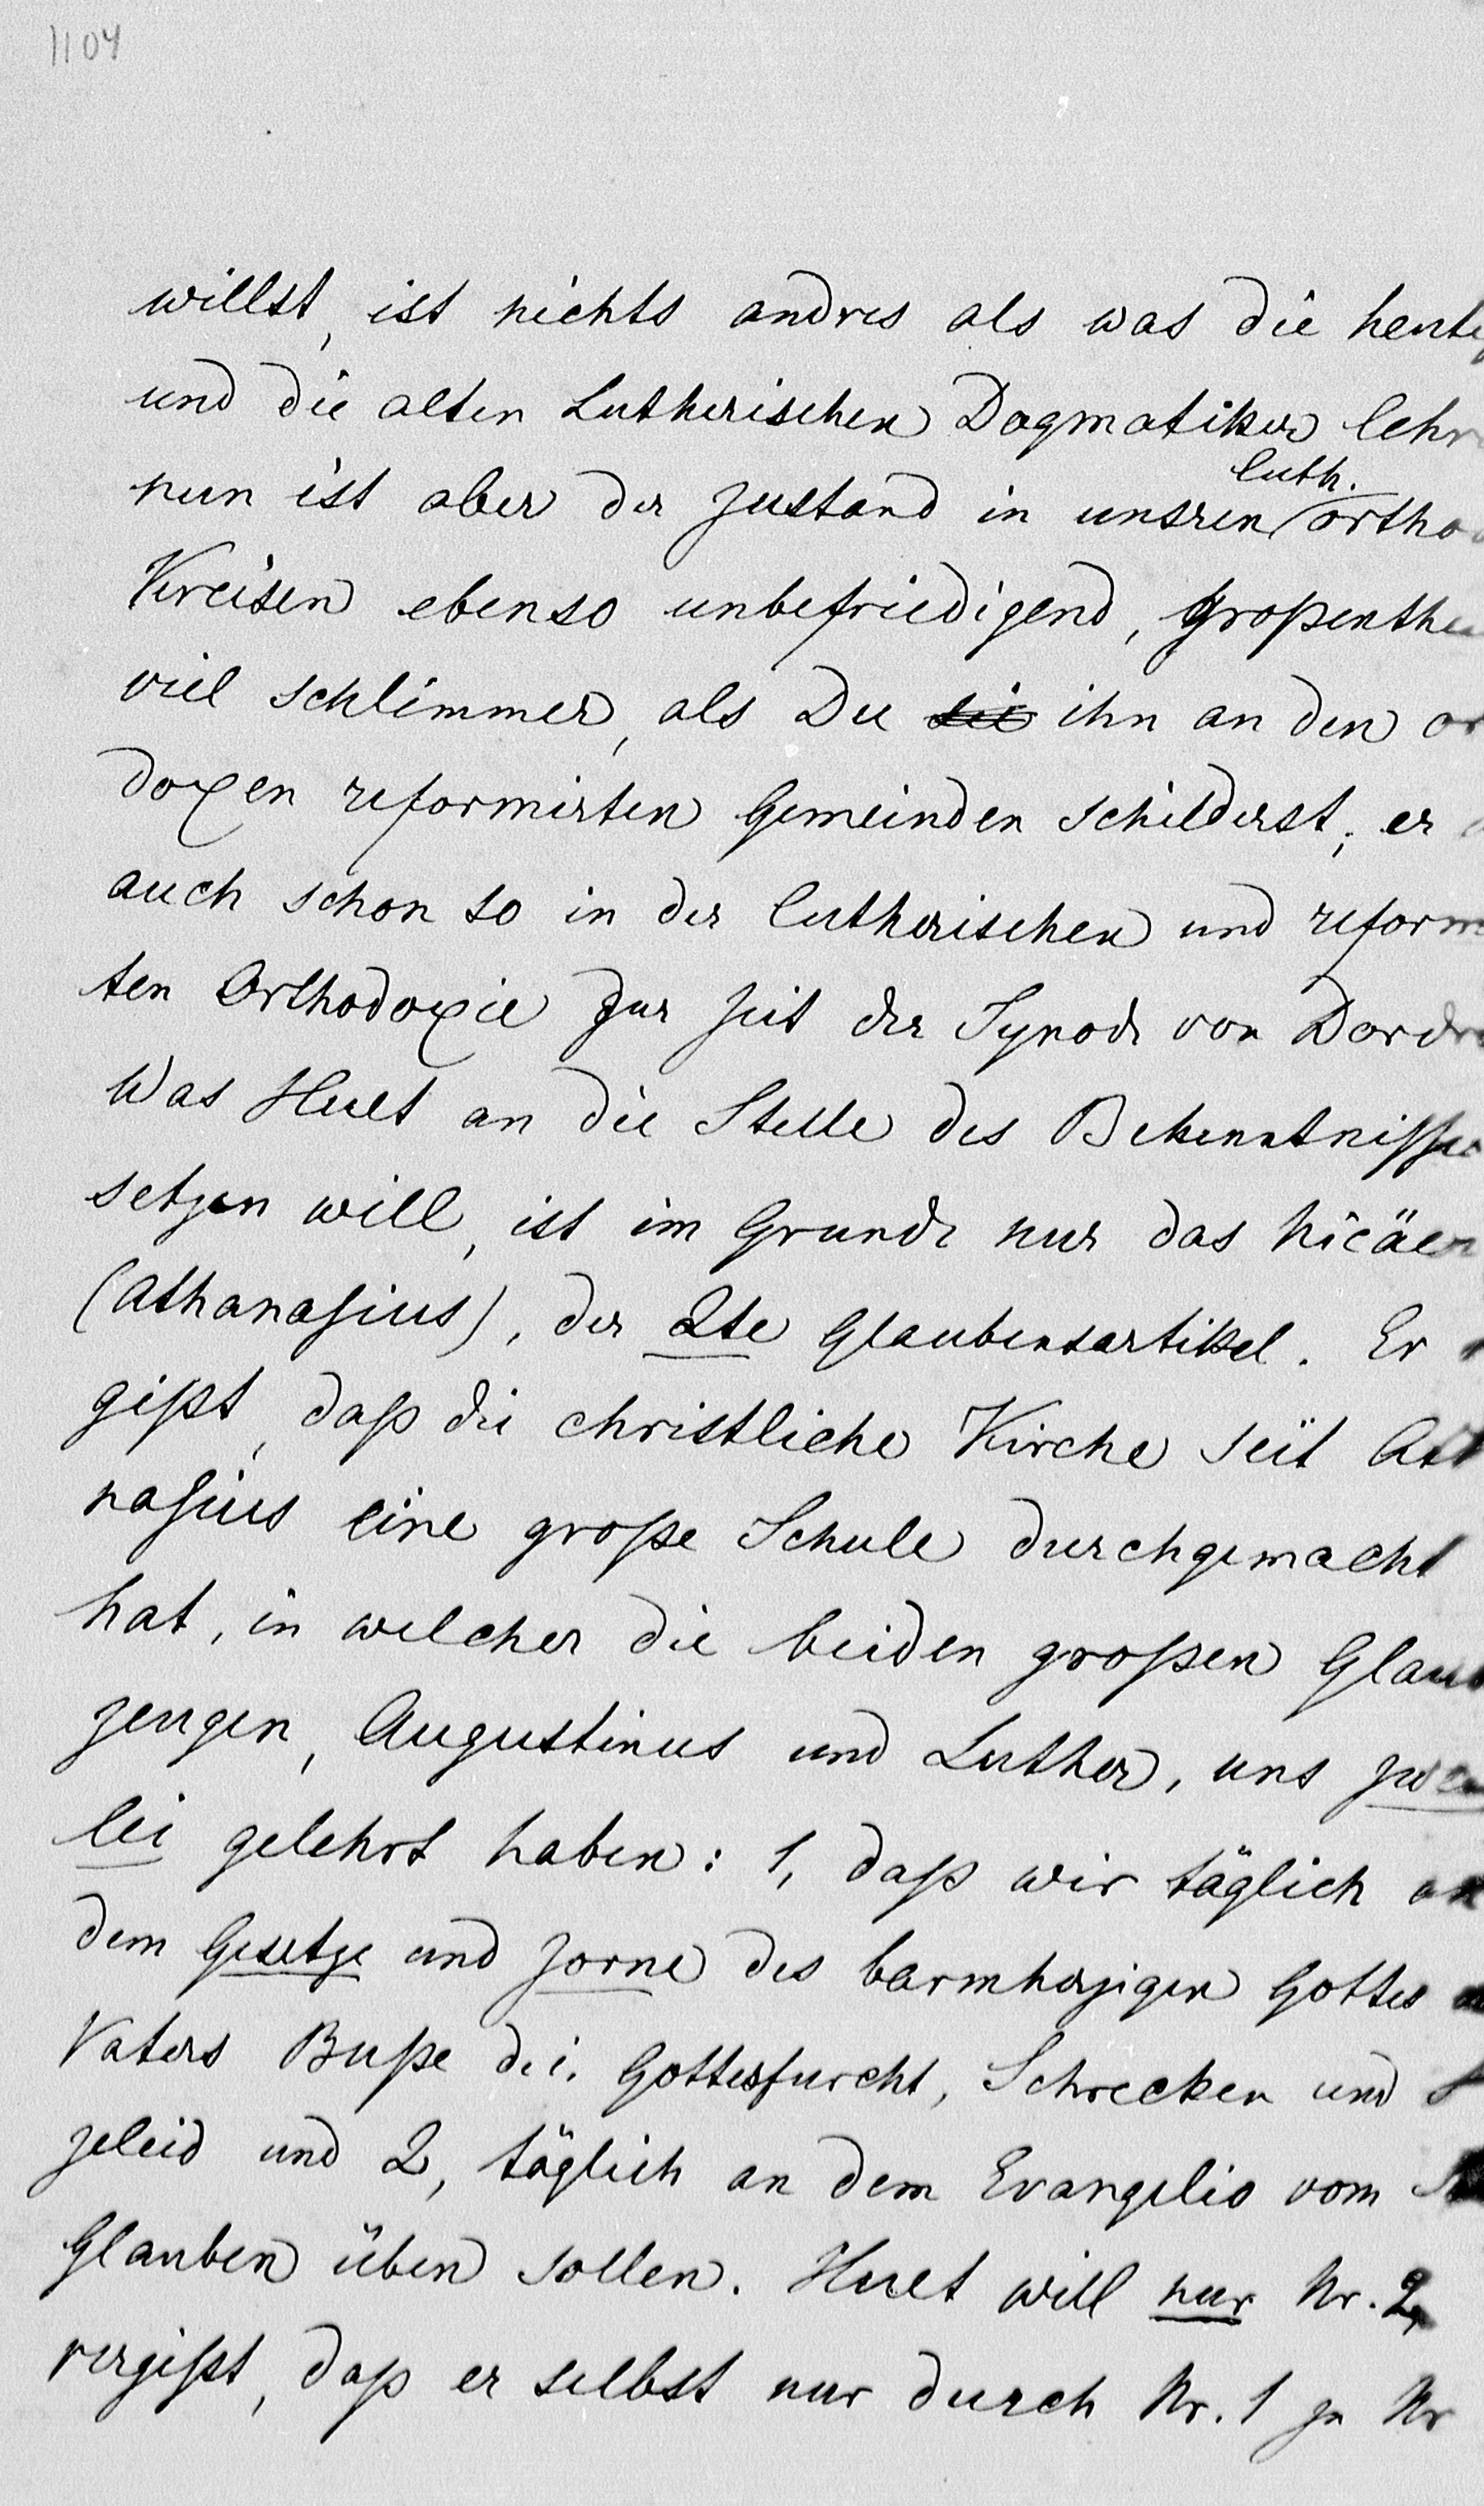 1104
willst, ist nichts andres als was die heuti
und die alten Lutherischen Dogmatiker lehr
luth.
nun ist aber der Zustand in unsren ortho
Kreisen ebenso unbefriedigend, großenthe
viel schlimmer, als Du sie ihn an den or
doxen reformirten Gemeinden schilderst; er
auch schon so in der lutherischen und reform
ten Orthodoxie zur Zeit der Synode von Dordr
Was Huet an die Stelle des Bekenntnisse
setzen will, ist im Grunde nur das Nicäen
(Athanasius), der 2te Glaubensartikel. Er
gißt, daß die christliche Kirche seit Ath
nasius eine große Schule durchgemacht
hat, in welcher die beiden großen Glaub
zeugen, Augustinus und Luther, uns zwei
lei gelehrt haben: 1, daß wir täglich an
dem Gesetze und Zorne des barmherzigen Gottes
Vaters Buße d.i. Gottesfurcht, Schrecken und
zeleid und 2, täglich an dem Evangelio vom
Glauben üben sollen. Huet will nur Nr. 2,
vergißt, daß er selbst nur durch Nr. 1 zu Nr